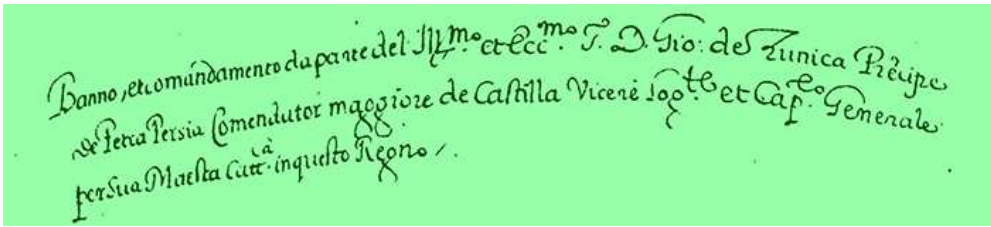 Banno, et comãndamento da parte del Ill.mo et Ecc.mo S. D. Gio: de Zunica Prẽcipe
de Petra Persia Comendator maggiore de Castilla Vicere Log.te et Cap.o Generale
per Sua Maesta Catt.ca in questo Regno /.